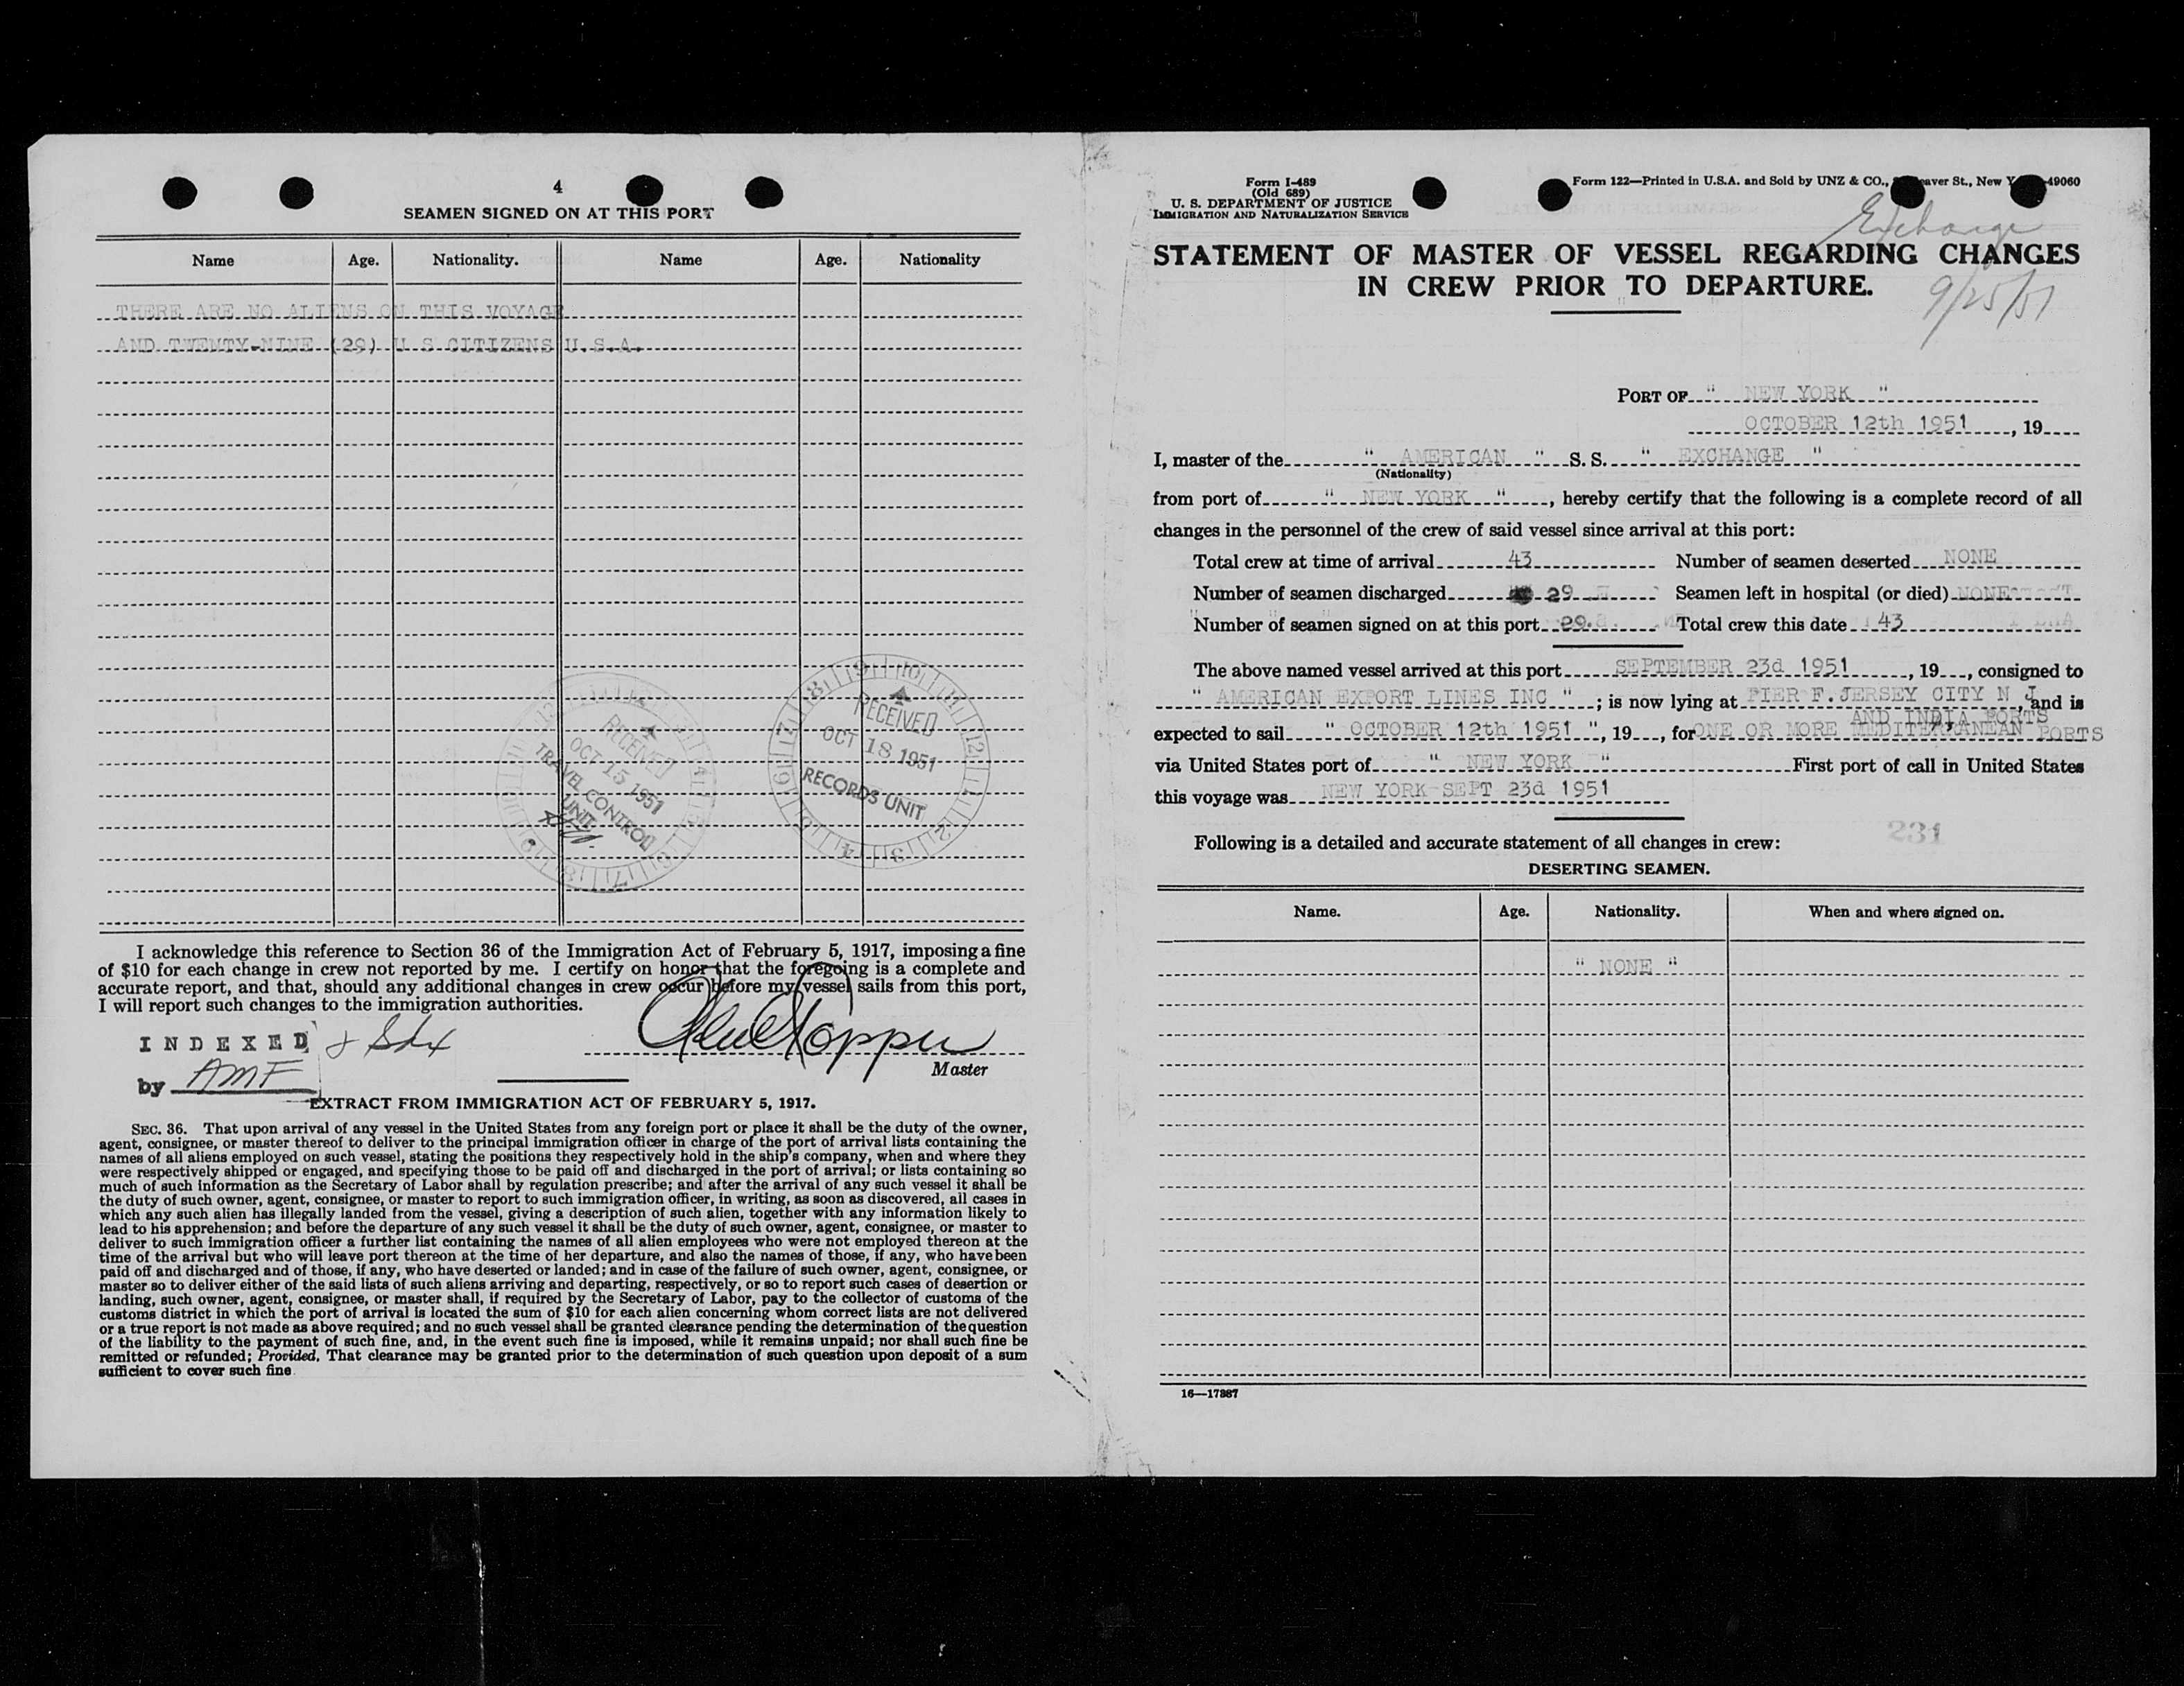 4
SEAMEN SIGNED ON AT THIS PORT
Name Age. Nationality. Name Age. Nationality
THERE ARE NO ALIENS ON THIS VOYAGE
AND TWENTY-NINE (29) U S CITIZENS U.S.A.
RECEIVED
OCT 15 1951
TRAVEL CONTROL
UNIT
RECEIVED
OCT 18 1951
RECORDS UNIT
I acknowledge this reference to Section 36 of the Immigration Act of February 5, 1917, imposing a fine
of $10 for each change in crew not reported by me. I certify on honor that the foregoing is a complete and
accurate report, and that, should any additional changes in crew occur before my vessel sails from this port,
I will report such changes to the immigration authorities.
INDEXED
by AMF
Master
EXTRACT FROM IMMIGRATION ACT OF FEBRUARY 5, 1917.
SEC. 36. That upon arrival of any vessel in the United States from any foreign port or place it shall be the duty of the owner,
agent, consignee, or master thereof to deliver to the principal immigration officer in charge of the port of arrival lists containing the
names of all aliens employed on such vessel, stating the positions they respectively hold in the ship's company, when and where they
were respectively shipped or engaged, and specifying those to be paid off and discharged in the port of arrival; or lists containing so
much of such information as the Secretary of Labor shall by regulation prescribe; and after the arrival of any such vessel it shall be
the duty of such owner, agent, consignee, or master to report to such immigration officer, in writing, as soon as discovered, all cases in
which any such alien has illegally landed from the vessel, giving a description of such alien, together with any information likely to
lead to his apprehension; and before the departure of any such vessel it shall be the duty of such owner, agent, consignee, or master to
deliver to such immigration officer a further list containing the names of all alien employees who were not employed thereon at the
time of the arrival but who will leave port thereon at the time of her departure, and also the names of those, if any, who have been
paid off and discharged and of those, if any, who have deserted or landed; and in case of the failure of such owner, agent, consignee, or
master so to deliver either of the said lists of such aliens arriving and departing, respectively, or so to report such cases of desertion or
landing, such owner, agent, consignee, or master shall, if required by the Secretary of Labor, pay to the collector of customs of the
customs district in which the port of arrival is located the sum of $10 for each alien concerning whom correct lists are not delivered
or a true report is not made as above required; and no such vessel shall be granted clearance pending the determination of the question
of the liability to the payment of such fine, and, in the event such fine is imposed, while it remains unpaid; nor shall such fine be
remitted or refunded; Provided, That clearance may be granted prior to the determination of such question upon deposit of a sum
sufficient to cover such fine.
Form I-489
(Old 689)
U. S. DEPARTMENT OF JUSTICE
IMMIGRATION AND NATURALIZATION SERVICE
Form 122—Printed in U.S.A. and Sold by UNZ & CO., eaver St., New Y 49060
Exchange
STATEMENT OF MASTER OF VESSEL REGARDING CHANGES
IN CREW PRIOR TO DEPARTURE.
9/25/51
PORT OF " NEW YORK "
OCTOBER 12th 1951, 19
I, master of the " AMERICAN " S. S. " EXCHANGE "
(Nationality)
from port of " NEW YORK ", hereby certify that the following is a complete record of all
changes in the personnel of the crew of said vessel since arrival at this port:
Total crew at time of arrival 43 Number of seamen deserted NONE
Number of seamen discharged 29 Seamen left in hospital (or died) NONE
Number of seamen signed on at this port 29. Total crew this date 43
The above named vessel arrived at this port SEPTEMBER 23d 1951, 19, consigned to
" AMERICAN EXPORT LINES INC " ; is now lying at PIER F. JERSEY CITY N J, and is
AND INDIA PORTS
expected to sail " OCTOBER 12th 1951 ", 19, for ONE OR MORE MEDITERRANEAN PORTS
via United States port of " NEW YORK " First port of call in United States
this voyage was NEW YORK SEPT 23d 1951
231
Following is a detailed and accurate statement of all changes in crew:
DESERTING SEAMEN.
Name. Age. Nationality. When and where signed on.
" NONE "
16—17887